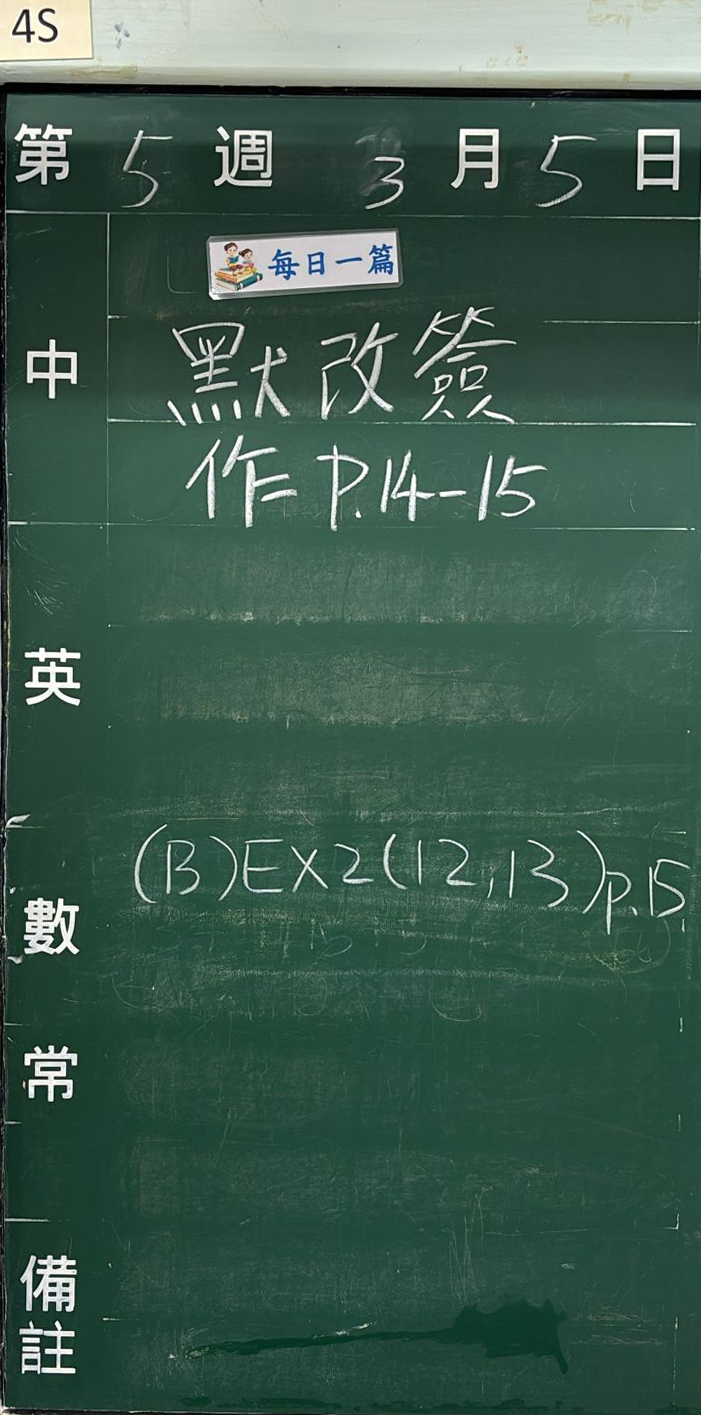 4S
第 5 週 3 月 5 日
每日一篇
中
默改簽
作 P.14-15
英
數
(B)EX2(12,13)p.15
常
備註